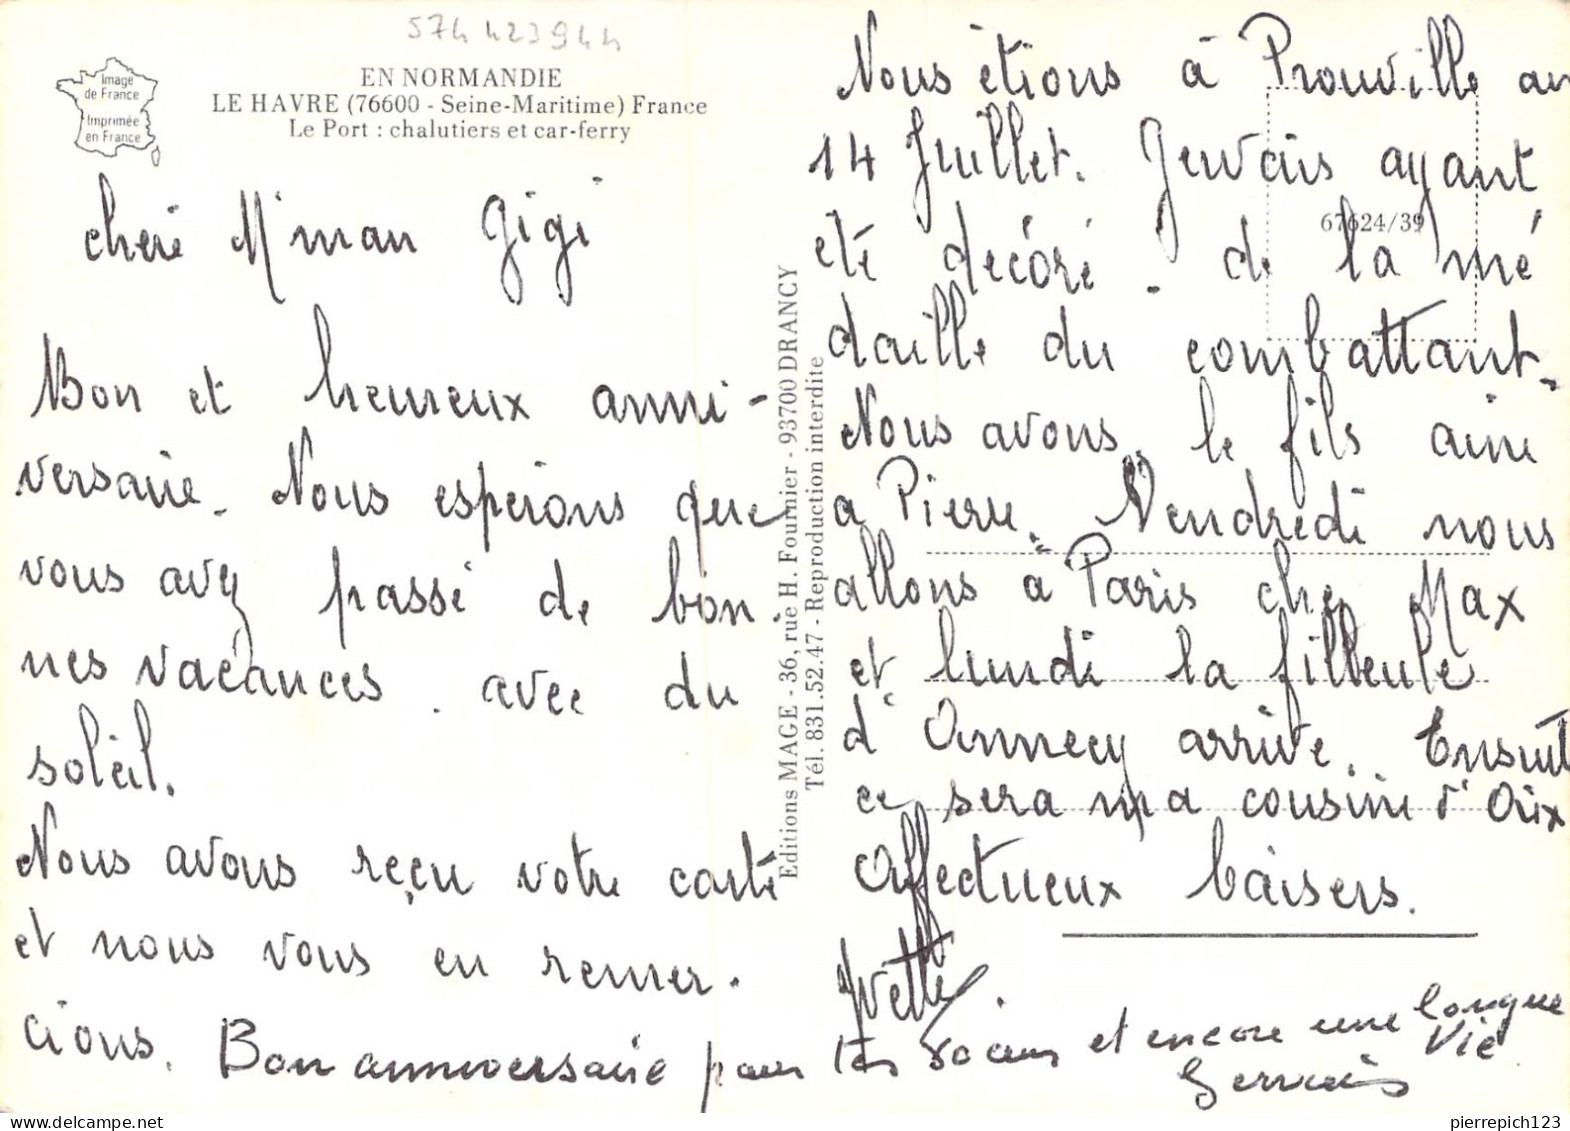 574 423944
Image
de France
Imprimée
en France
EN NORMANDIE
LE HAVRE (76600 - Seine-Maritime) France
Le Port : chalutiers et car-ferry
cheré M'man Gigi
Bon et heureux anni-
versaire. Nous esperons que
vous avez passé de bon
nes vacances. avec du
soleil.
Nous avons reçu votre carte
et nous vous en remer.
cions. Bon anniversaire pour tes 80 ans et encore une longue
Vie
Gervais
Editions MAGE - 36, rue H. Fournier - 93700 DRANCY
Tél. 831.52.47 - Reproduction interdite
67624/39
Nous étions à Prouville au
14 Juillet. Jervais ayant
eté décoré. de la mé
daille du combattant.
Nous avons le fils ainé
a Pierre. Vendredi nous
allons à Paris chez Max
et lundi la filleule
d'Annecy arrive. Ensuite
ce sera ma cousine d'Oix
Affectueux baisers.
Yvette
pierrepich123